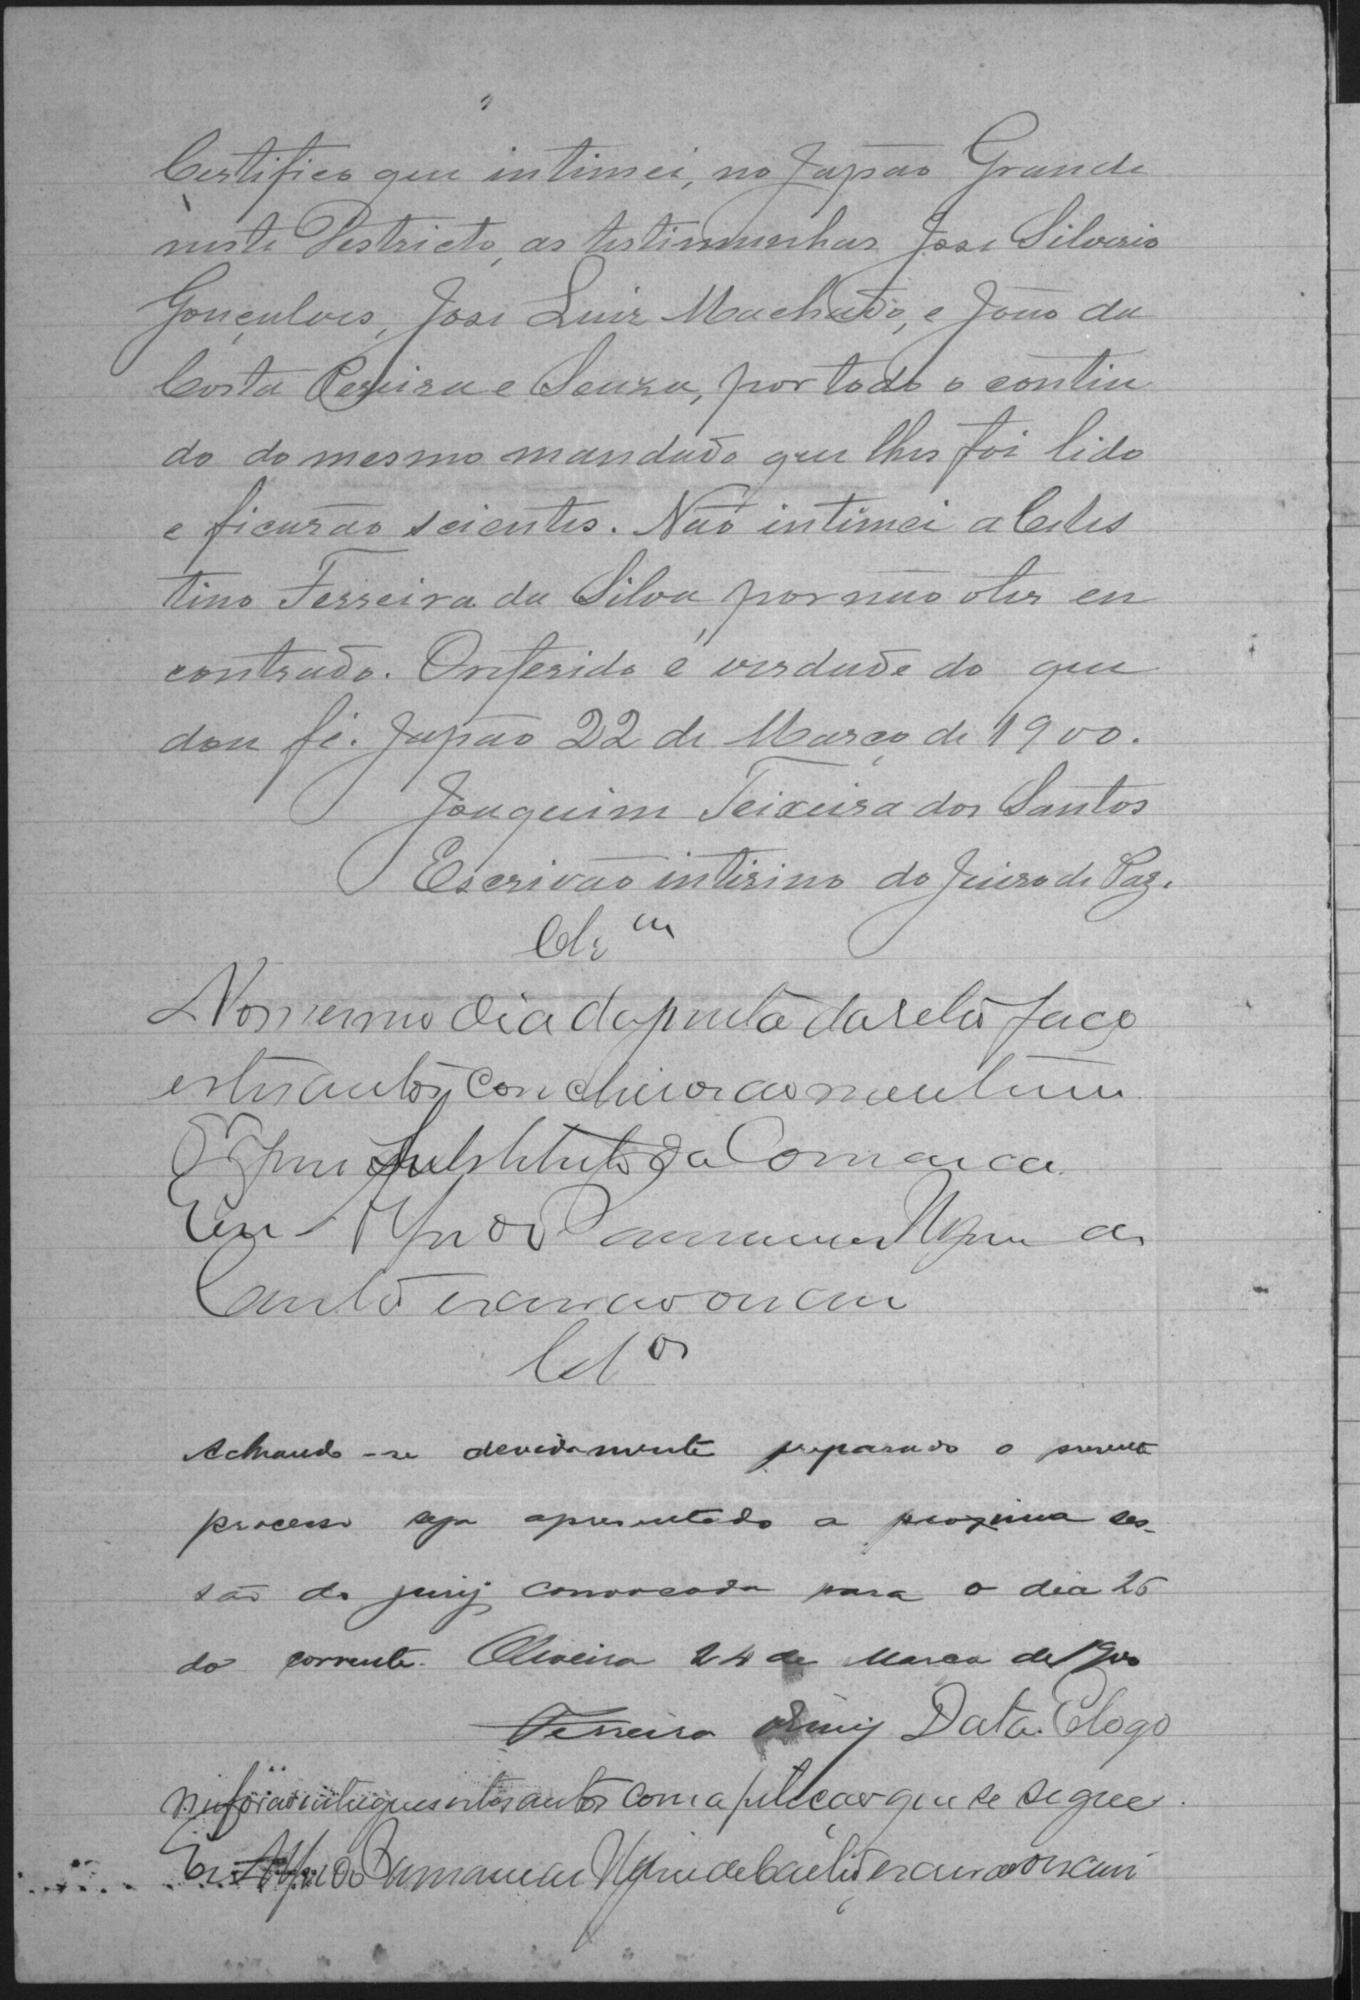 Certifico que intimei, no Japão Grande
neste Destricto, as testimunhas José Silverio
Gonçalves, José Luiz Machado, e João da
Costa Pereira e Souza, por todo o contiu
do do mesmo mandado que lhes foi lido
e ficarão scientes. Não intimei a Celes
tino Ferreira da Silva, por não oter en
contrado. Oreferido é verdade do que
dou fé. Japão 22 de Março de 1900.
Joaquim Teixeira dos Santos
Escrivão intirino do Juizo de Paz.
Clz m
No mesmo dia da data faço
estes autos conclusos ao
Substituto da Comarca.
Eu
Castro escrivão
Cls os
Achando-se devidamente preparado o presente
processo seja apresentado a proxima ses-
são do jury convocada para o dia 26
do corrente. Oliveira 24 de Março de 1900
Ferreira Diniz Data. E logo
me forão entregues estes autos com a petição que se segue.
Eu de Castro escrivão